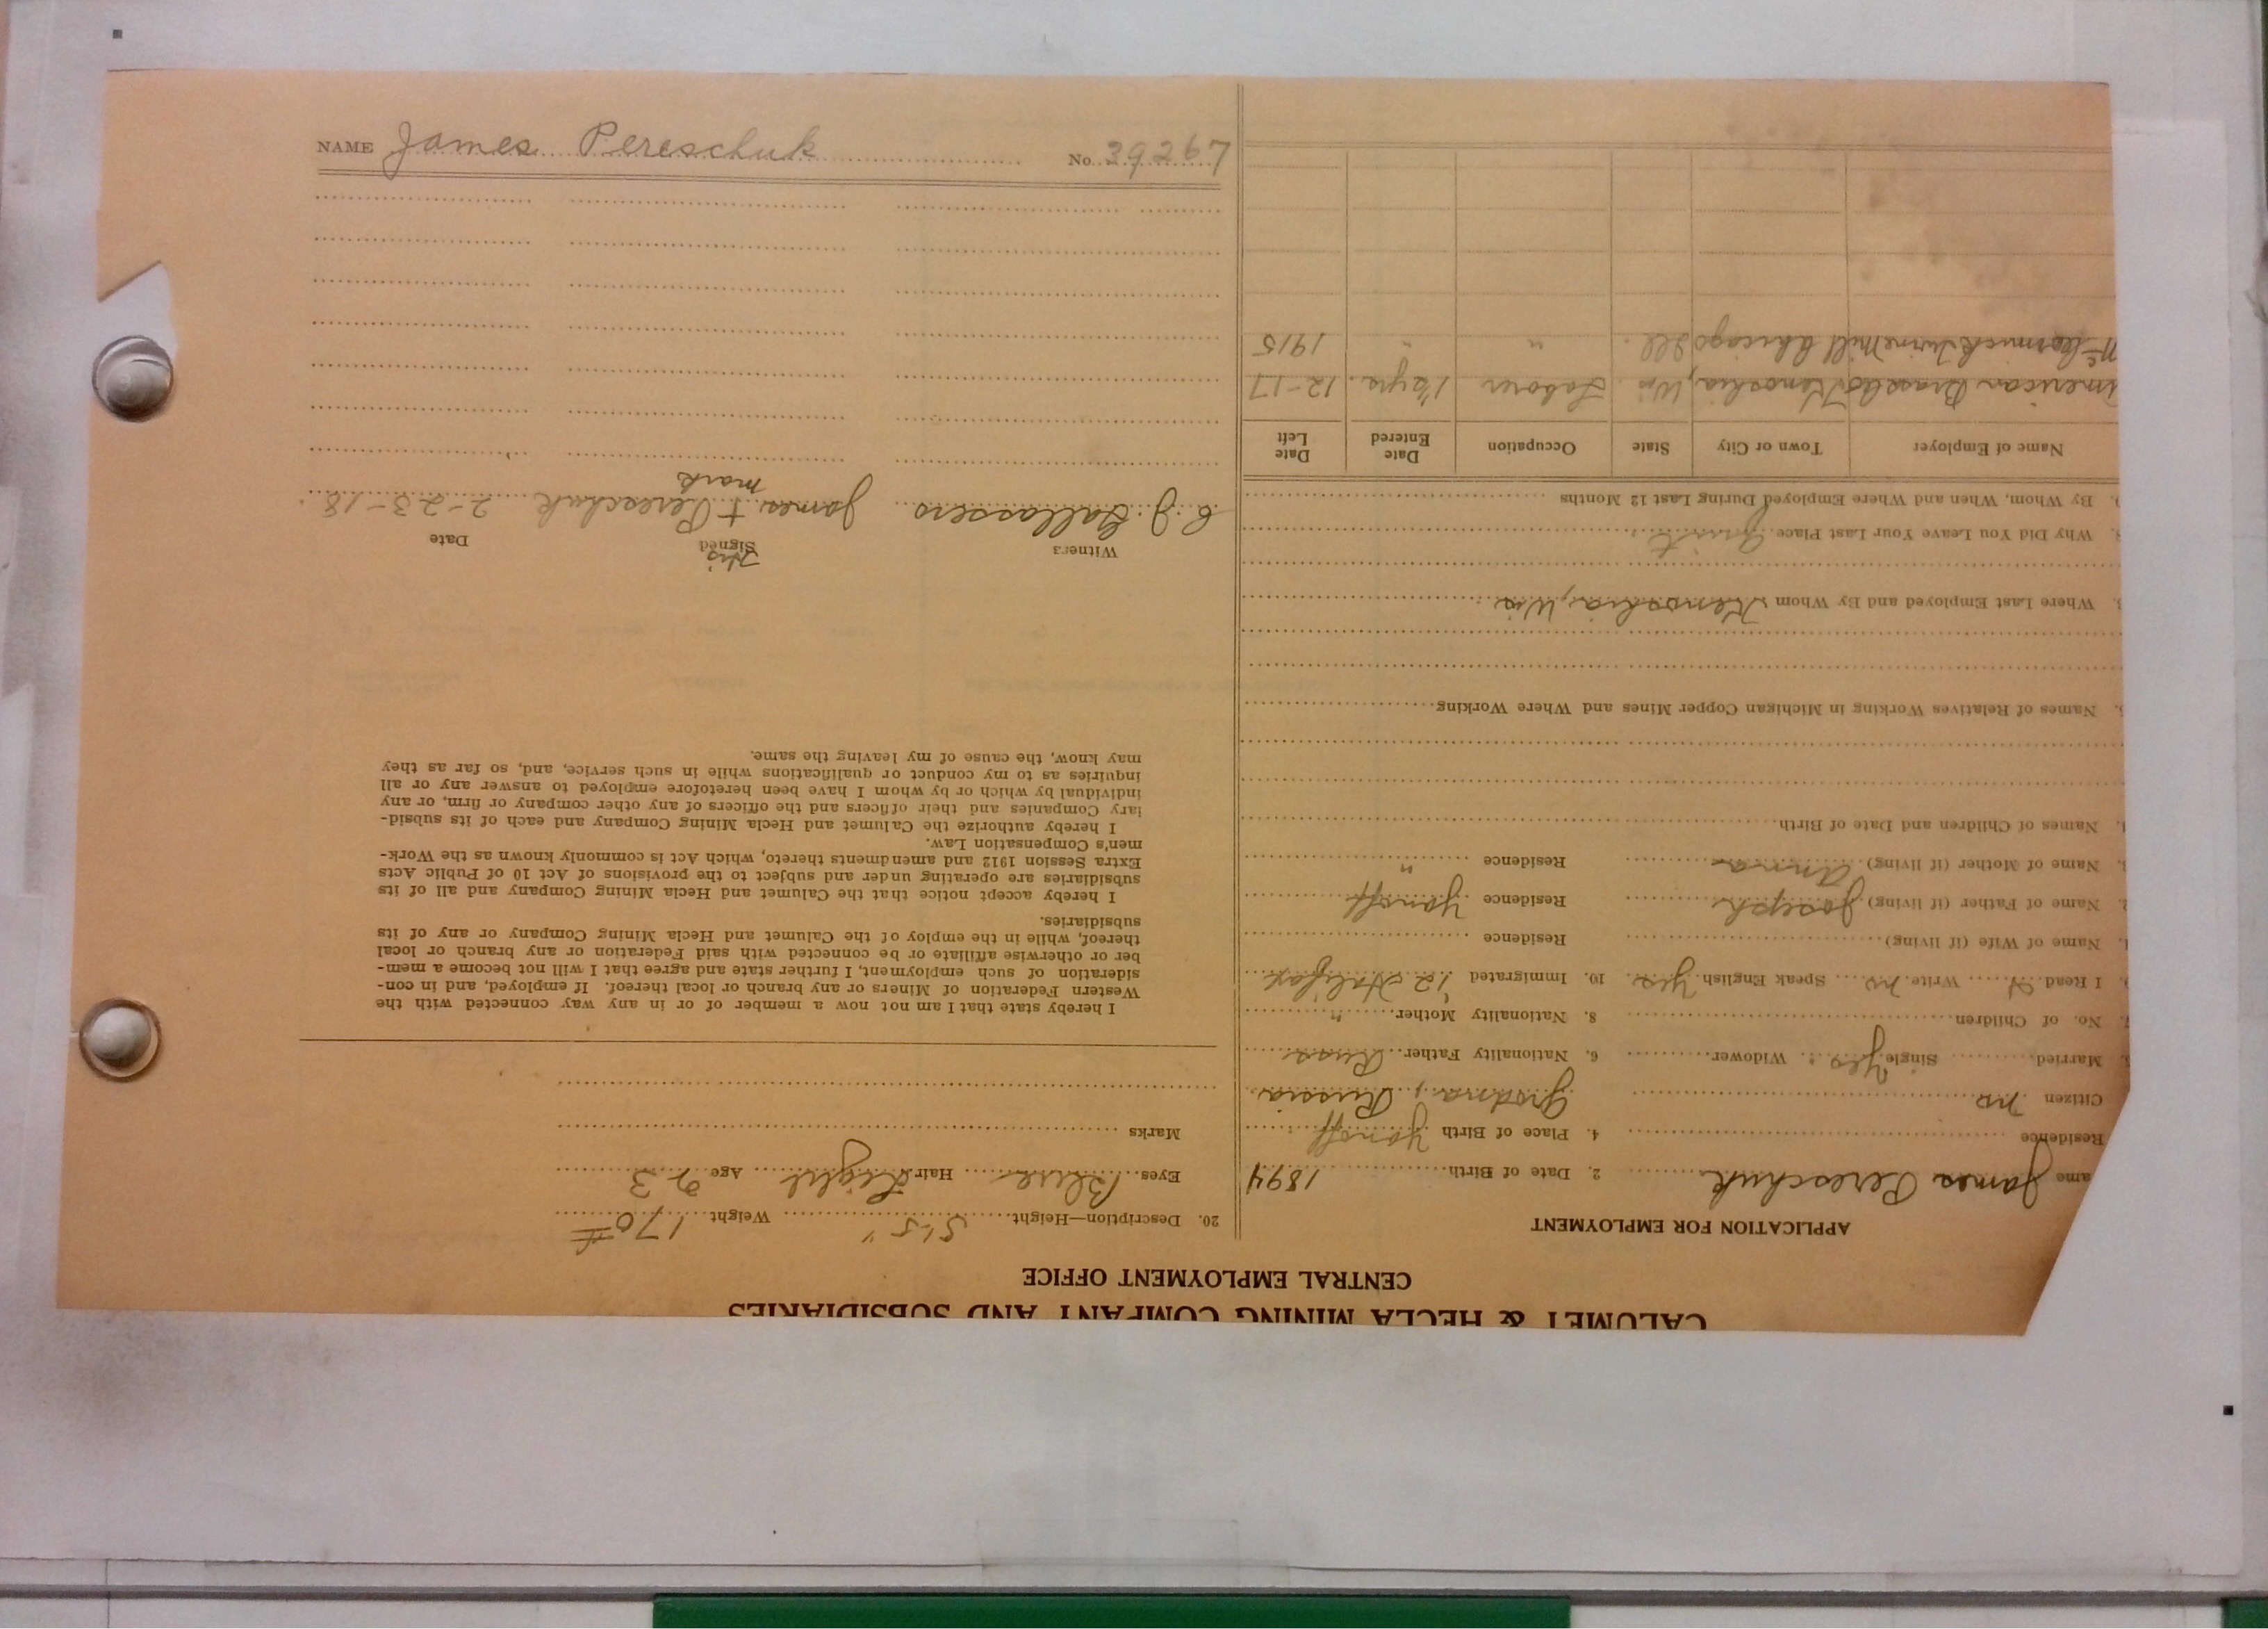 NAME James Pereschuk No. 39267
CALUMET & HECLA MINING COMPANY AND SUBSIDIARIES
CENTRAL EMPLOYMENT OFFICE
APPLICATION FOR EMPLOYMENT
ame James Pereschuk 2. Date of Birth 1894
Residence 4. Place of Birth Yanoff
Citizen no Grodna, Russia
Married Single Yes Widower 6. Nationality Father Russ
7. No. of Children 8. Nationality Mother "
9. I Read Write no Speak English Yes 10. Immigrated 12 Halifax
Name of Wife (if living) Residence
2. Name of Father (if living) Joseph Residence Yanoff
3. Name of Mother (if living) Anna Residence "
4. Names of Children and Date of Birth
5. Names of Relatives Working in Michigan Copper Mines and Where Working
Where Last Employed and By Whom Kenoshia, Wis
8. Why Did You Leave Your Last Place Quit
9. By Whom, When and Where Employed During Last 12 Months
Name of Employer Town or City State Occupation Date Entered Date Left
American Brass Co Kenoshia, Wis Laborer yrs. 12-17
McCormick Twine Mill Chicago Ill. " " 1915
20. Description—Height 5'5" Weight 170#
Eyes Blue Hair Light Age 23
Marks
I hereby state that I am not now a member of or in any way connected with the
Western Federation of Miners or any branch or local thereof. If employed, and in con-
sideration of such employment, I further state and agree that I will not become a mem-
ber or otherwise affiliate or be connected with said Federation or any branch or local
thereof, while in the employ of the Calumet and Hecla Mining Company or any of its
subsidiaries.
I hereby accept notice that the Calumet and Hecla Mining Company and all of its
subsidiaries are operating under and subject to the provisions of Act 10 of Public Acts
Extra Session 1912 and amendments thereto, which Act is commonly known as the Work-
men's Compensation Law.
I hereby authorize the Calumet and Hecla Mining Company and each of its subsid-
iary Companies and their officers and the officers of any other company or firm, or any
individual by which or by whom I have been heretofore employed to answer any or all
inquiries as to my conduct or qualifications while in such service, and, so far as they
may know, the cause of my leaving the same.
Witness Signed Date
His
James + Pereschuk 2-23-18
mark